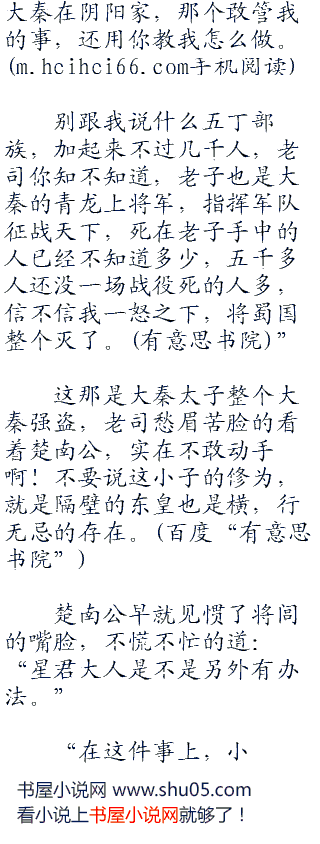 大秦在阴阳家，那个敢管我
的事，还用你教我怎么做。
(m.hcihci66.com手机阅读)
别跟我说什么五丁部
族，加起来不过几千人，老
司你知不知道，老子也是大
秦的青龙上将军，指挥军队
征战天下，死在老子手中的
人已经不知道多少，五千多
人还没一场战役死的人多，
信不信我一怒之下，将蜀国
整个灭了。(有意思书院)”
这那是大秦太子整个大
秦强盗，老司愁眉苦脸的看
着楚南公，实在不敢动手
啊！不要说这小子的修为，
就是隔壁的东皇也是横，行
无忌的存在。(百度“有意思
书院”)
楚南公早就见惯了将闾
的嘴脸，不慌不忙的道：
“星君大人是不是另外有办
法。”
“在这件事上，小
书屋小说网 www.shu05.com
看小说上书屋小说网就够了！